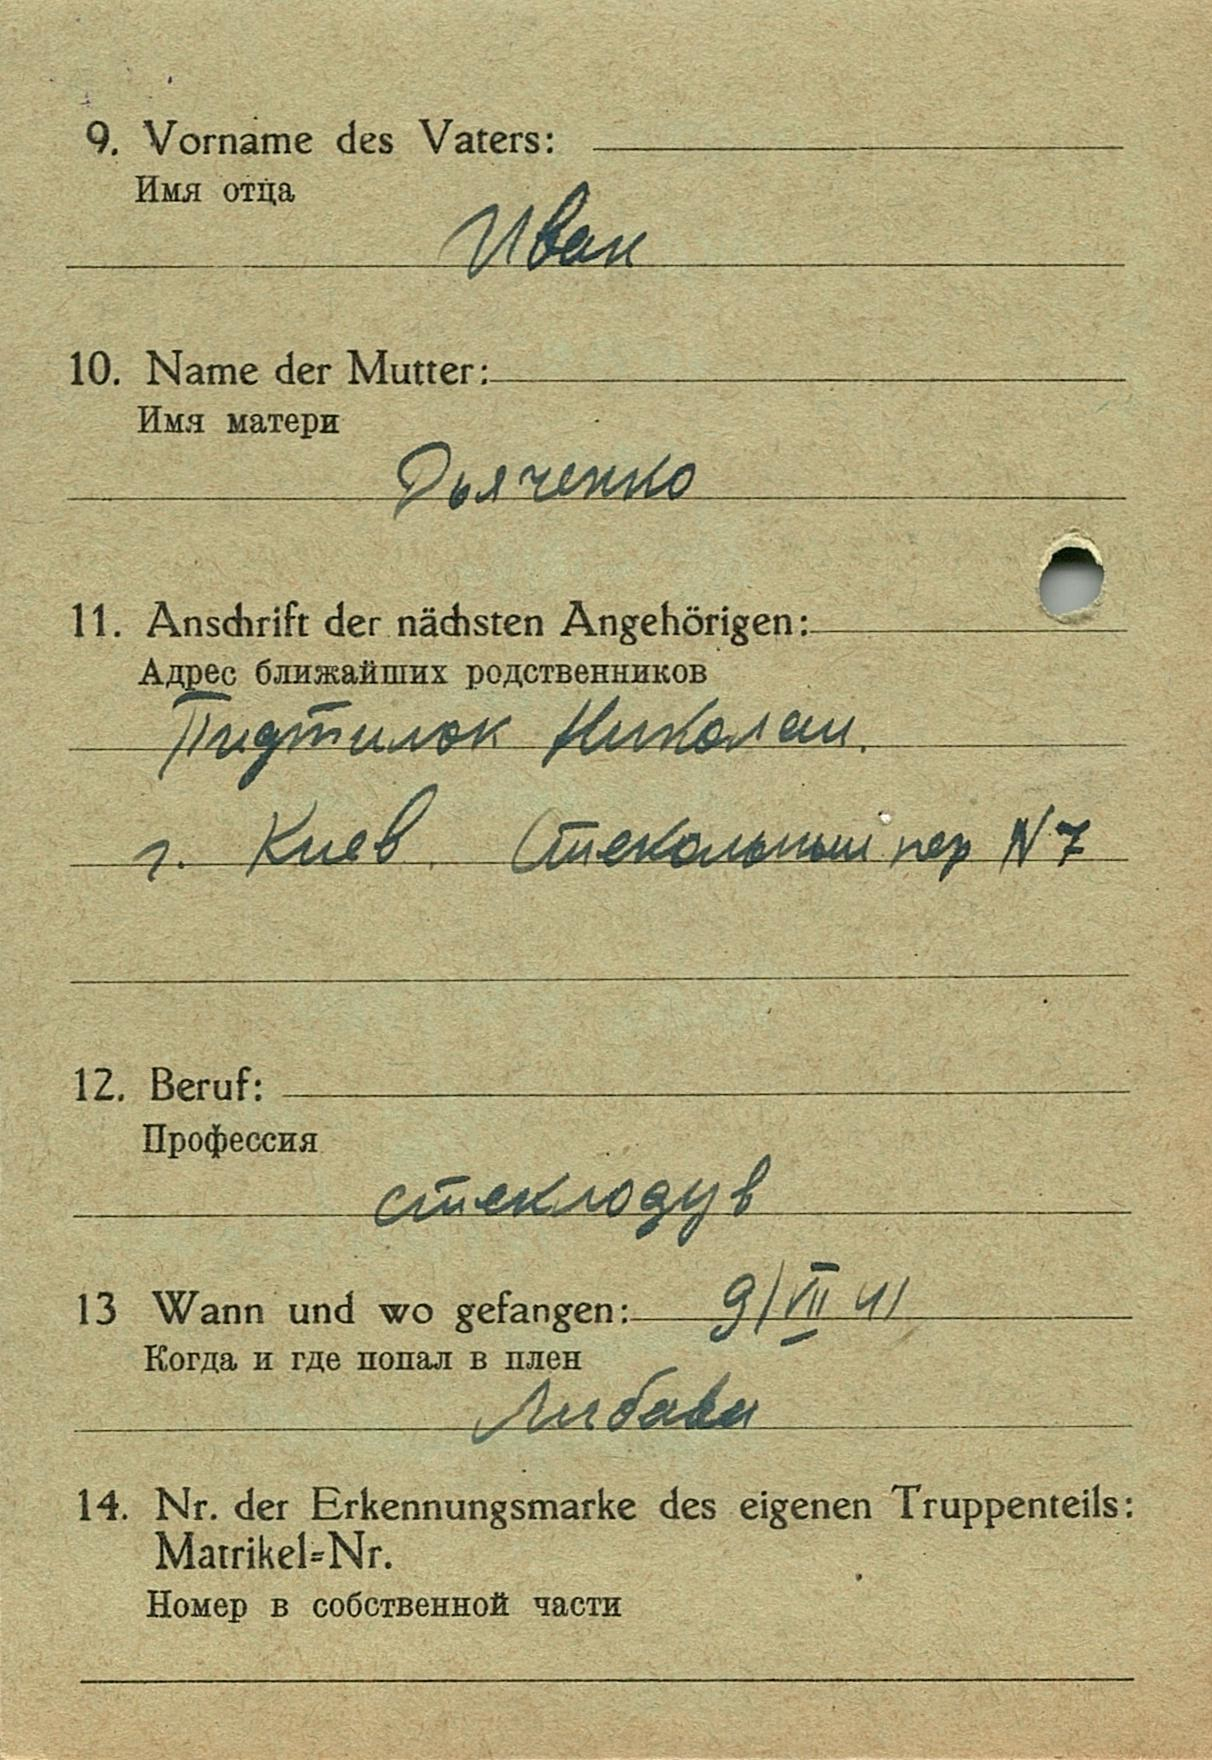 9. Vorname des Vaters:
Имя отца
Иван
10. Name der Mutter:
Имя матери
Дьяченко
11. Anschrift der nächsten Angehörigen:
Адрес ближайших родственников
Пидтилок Николаи.
г. Киев. Стекольный пер N 7
12. Beruf:
Профессия
стеклодув
13 Wann und wo gefangen: 9/VII 41
Когда и где попал в плен
Либава
14. Nr. der Erkennungsmarke des eigenen Truppenteils:
Matrikel=Nr.
Номер в собственной части